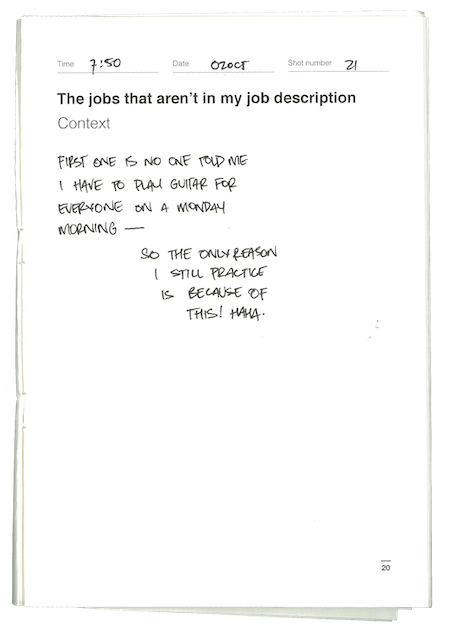 Time 7:50 Date 02OCT Shot number 21
The jobs that aren't in my job description
Context
FIRST ONE IS NO ONE TOLD ME
I HAVE TO PLAY GUITAR FOR
EVERYONE ON A MONDAY
MORNING —
SO THE ONLY REASON
I STILL PRACTICE
IS BECAUSE OF
THIS! HAHA.
20